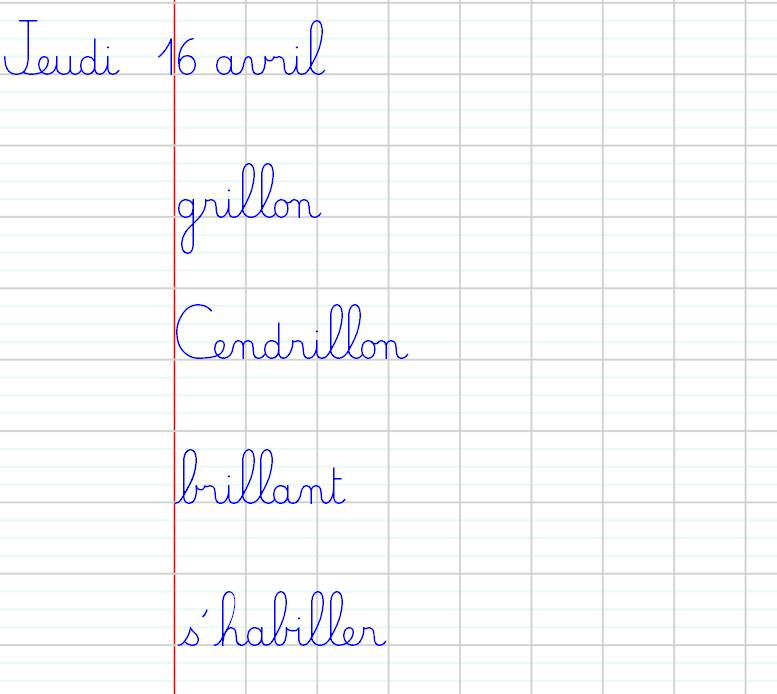 Jeudi 16 avril
grillon
Cendrillon
brillant
s'habiller